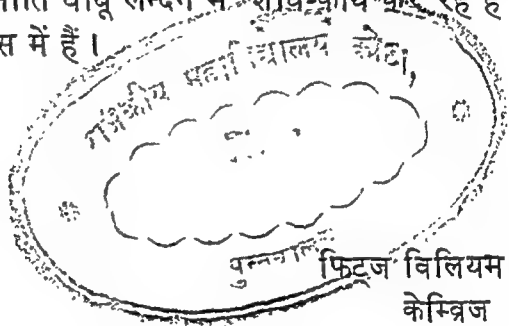 बाबू लन्दन में शोध-कार्य कर रहे ह
स में हैं।
महाविद्यालय कोटा,
फिट्ज विलियम
केम्ब्रिज